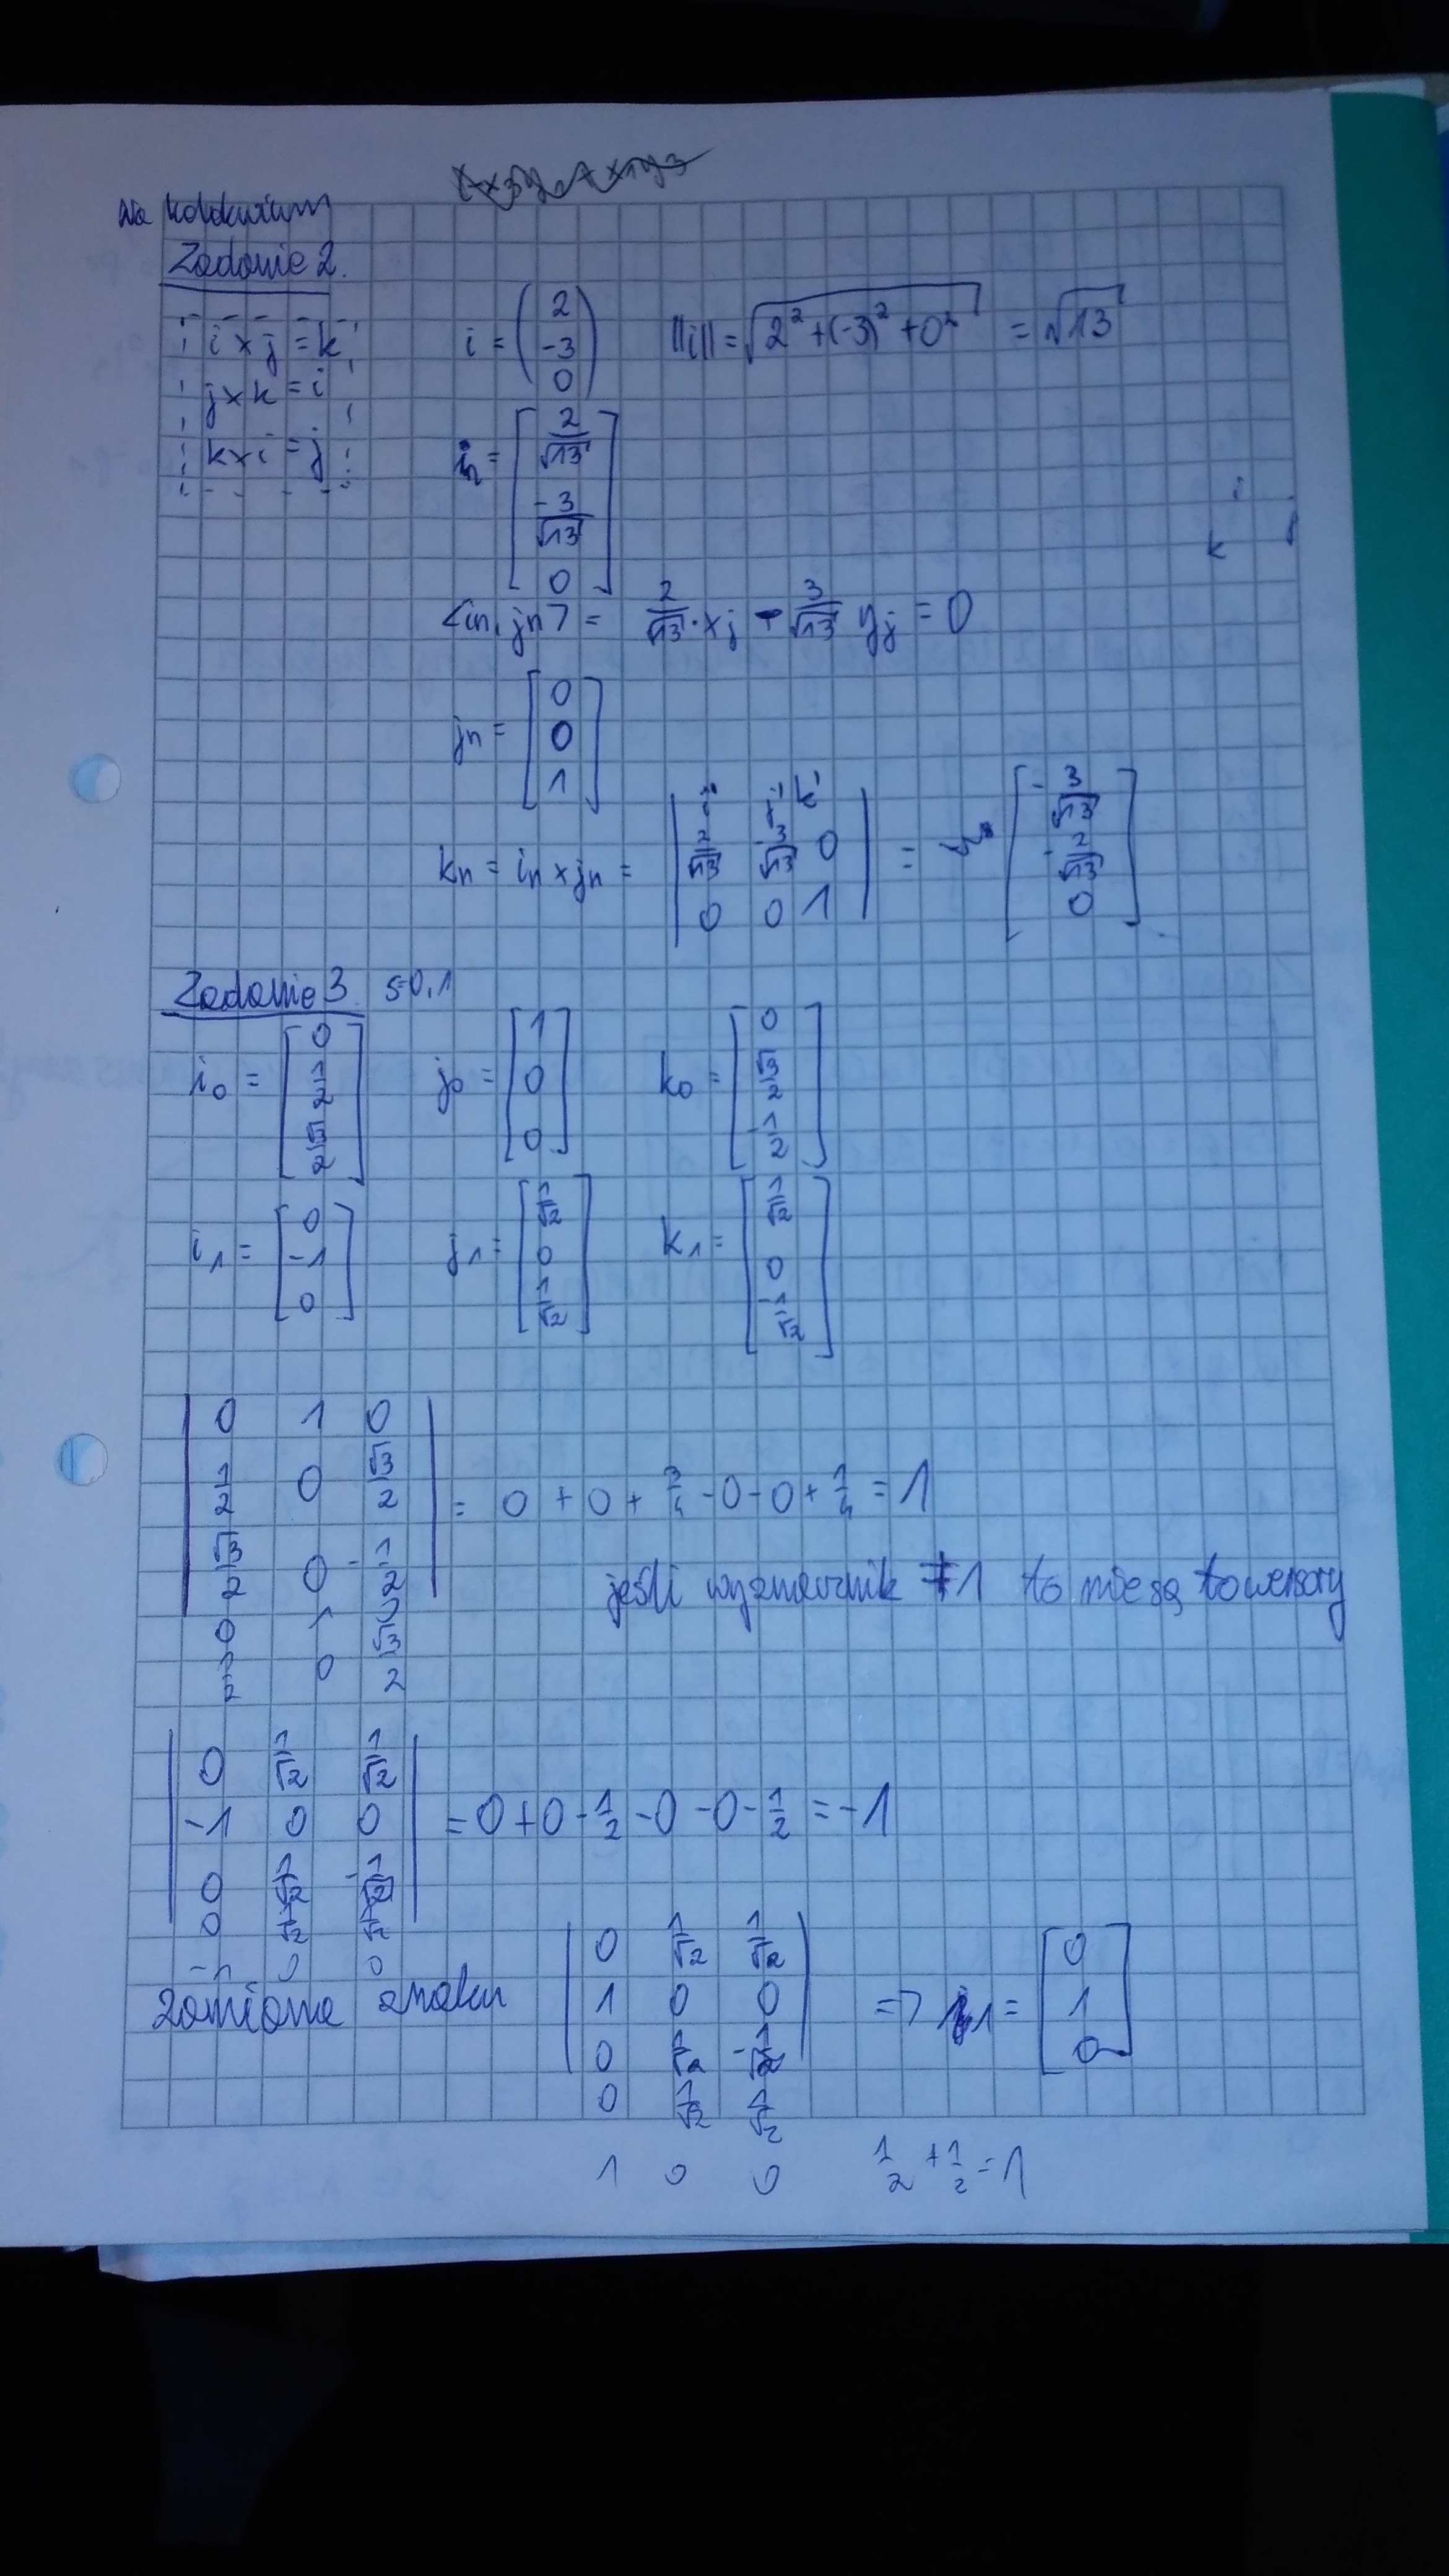 Na kolokwium
Zadanie 2.
i × j = k
j × k = i
k × i = j
i = (2 -3 0) ||i|| = √(2² + (-3)² + 0²) = √13
in = [2/√13 -3/√13 0]
<in, jn> = 2/√13 · xj - 3/√13 yj = 0
jn = [0 0 1]
kn = in × jn = | i j k | = [-3/√13 -2/√13 0]
2/√13 -3/√13 0
0 0 1
i j
k
Zadanie 3 s=0,1
i0 = [0 1/2 √3/2] j0 = [1 0 0] k0 = [0 √3/2 -1/2]
i1 = [0 -1 0] j1 = [1/√2 0 1/√2] k1 = [1/√2 0 -1/√2]
| 0 1 0 |
| 1/2 0 √3/2 | = 0 + 0 + 3/4 - 0 - 0 + 1/4 = 1
| √3/2 0 -1/2 |
0 1 0
1/2 0 √3/2
jeśli wyznacznik ≠ 1 to nie są to wersory
| 0 1/√2 1/√2 |
| -1 0 0 | = 0 + 0 - 1/2 - 0 - 0 - 1/2 = -1
| 0 1/√2 -1/√2 |
0 1/√2 1/√2
-1 0 0
zamiana znaku | 0 1/√2 1/√2 |
| 1 0 0 | => i1 = [0 1 0]
| 0 1/√2 -1/√2 |
0 1/√2 1/√2
1 0 0 1/2 + 1/2 = 1